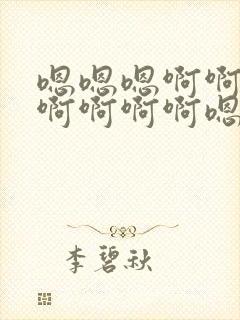 嗯嗯嗯啊啊
啊啊啊啊嗯
李碧秋